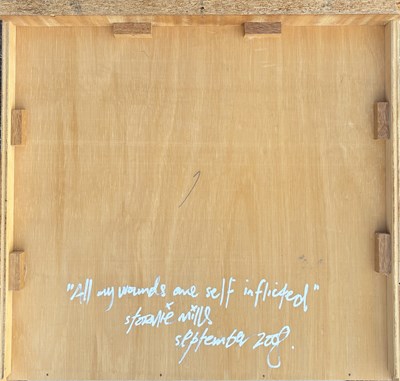 "All my wounds are self inflicted"
stormie mills
september 2008.